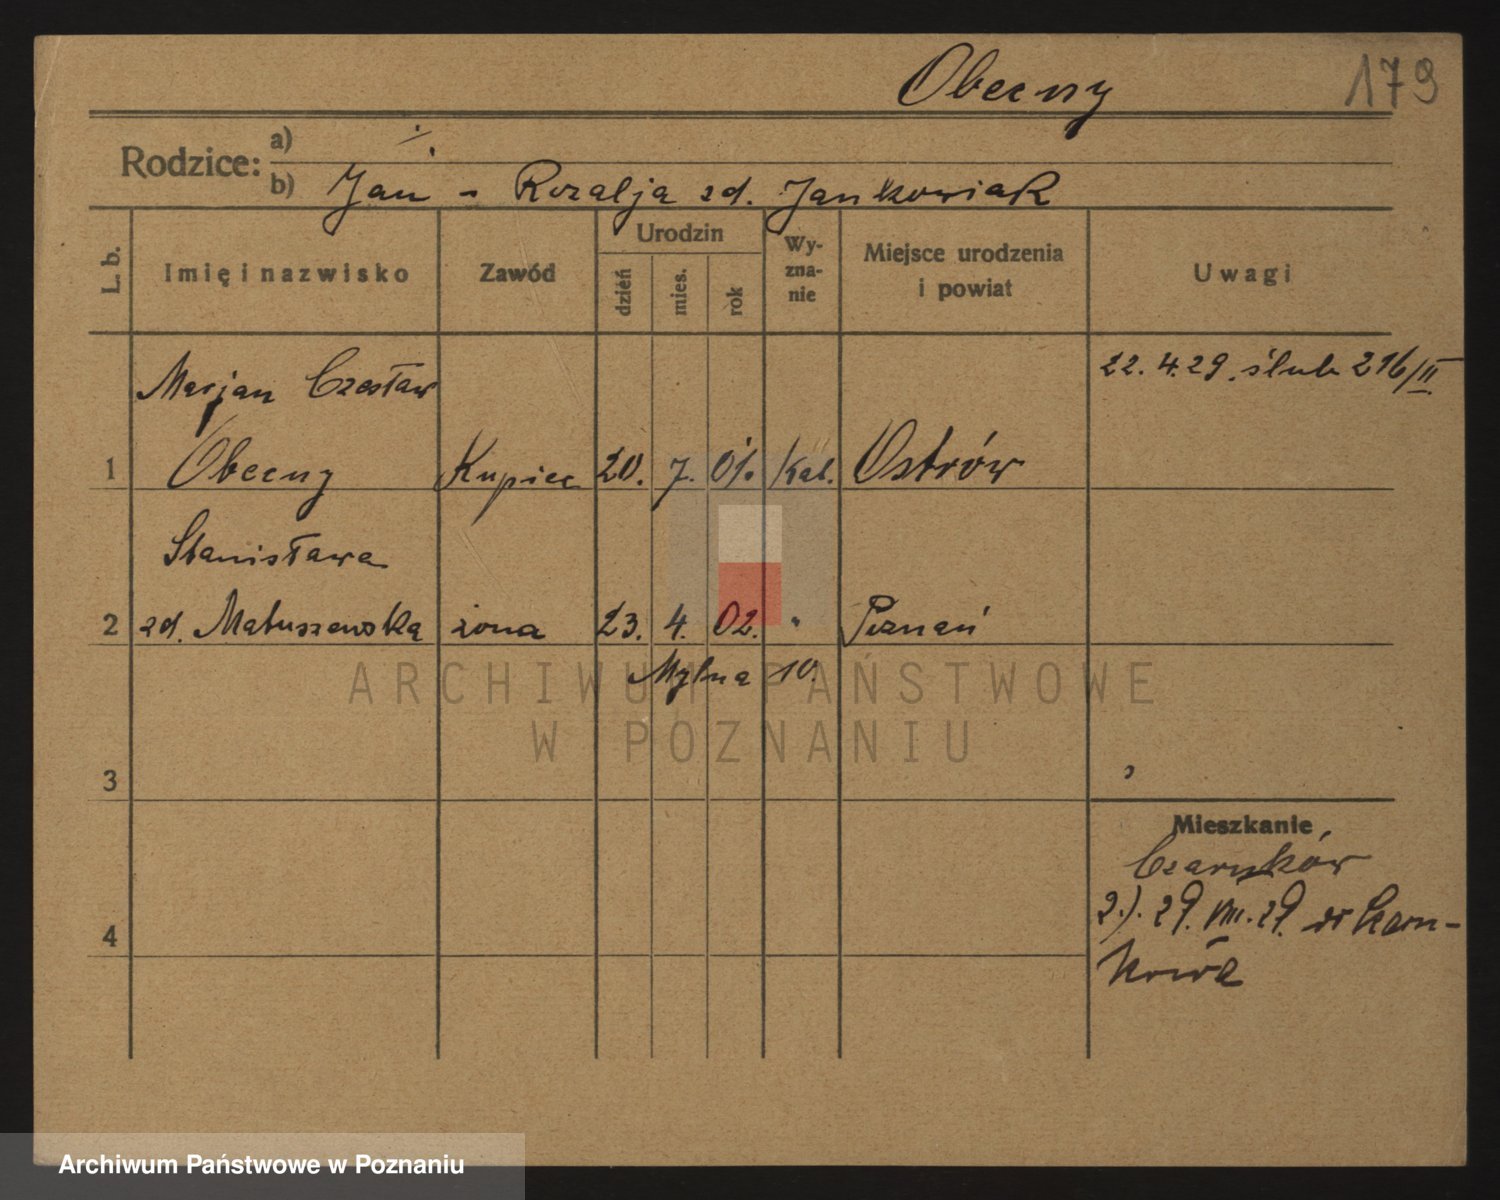 Obecny 179
Rodzice: a)
b) Jan - Rozalja zd. Jankowiak
L. b. Imię i nazwisko Zawód Urodzin dzień mies. rok Wy-zna-nie Miejsce urodzenia i powiat Uwagi
22. 4. 29. ślub 216/II
Marjan Czesław
1 Obecny Kupiec 20. 7. 01. Kat. Ostrów
Stanisława
2 zd. Matuszewska żona 23. 4. 02. " Poznań
Mylna 10.
3
Mieszkanie
Czarnków
2.). 29. VIII. 29. Czarn-
4
kowa
ARCHIWUM PAŃSTWOWE
W POZNANIU
Archiwum Państwowe w Poznaniu